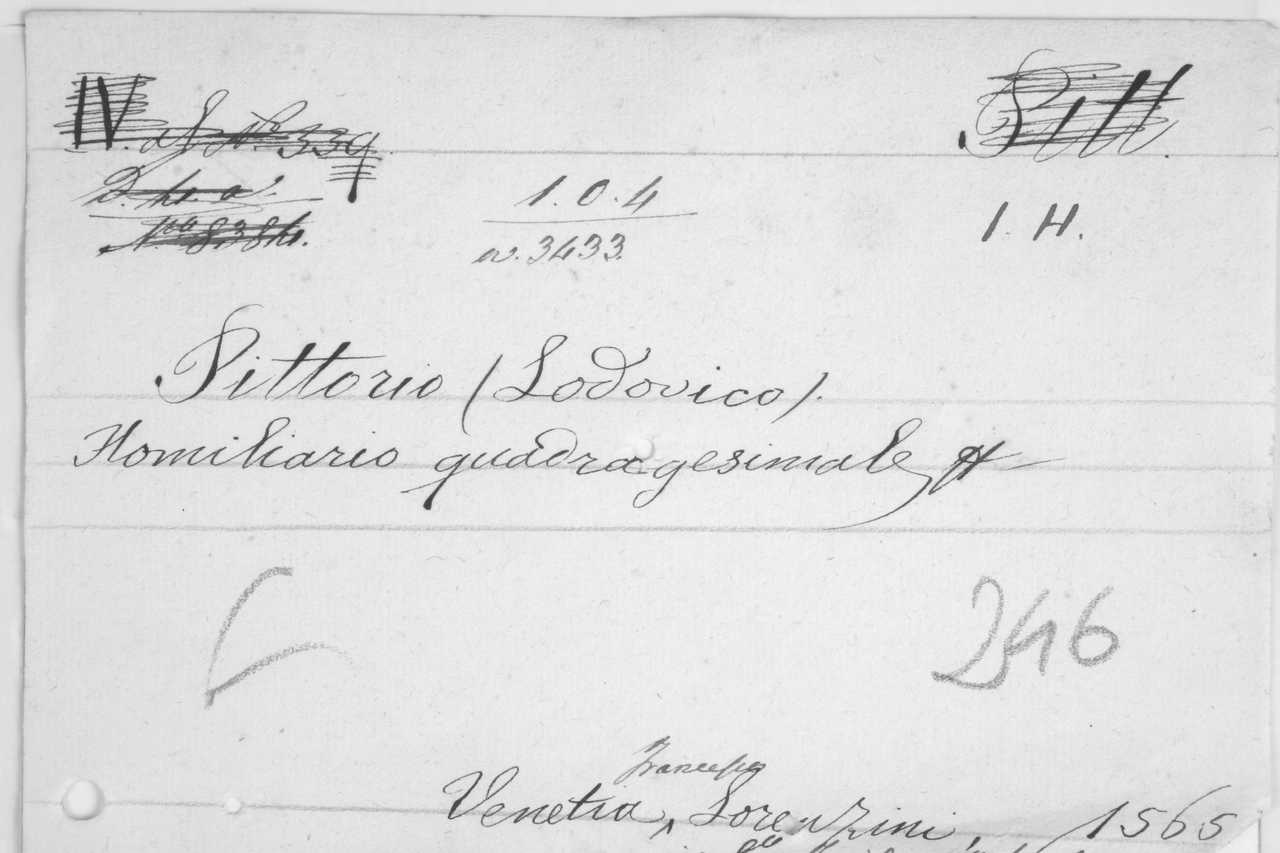 IV. N° 339. Pitt.
1.0.4 1. H.
N° 8384. w. 3433.
Pittorio (Lodovico).
Homiliario quadragesimale
246
Francesco
Venetia, Lorenzini, 1565